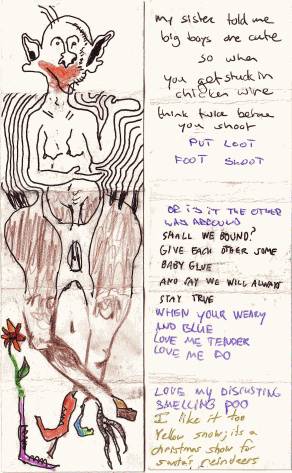 my sister told me
big boys are cute
so when
you get stuck in
chicken wire
think twice before
you shoot
PUT LOOT
FOOT SHOOT
OR IS IT THE OTHER
WAY AROUND
SHALL WE BOUND?
GIVE EACH OTHER SOME
BABY GLUE
AND SAY WE WILL ALWAYS
STAY TRUE
WHEN YOUR WEARY
AND BLUE
LOVE ME TENDER
LOVE ME DO
LOVE MY DISGUSTING
SMELLING POO
I like it too
Yellow snow, its a
christmas show for
santa's reindeers